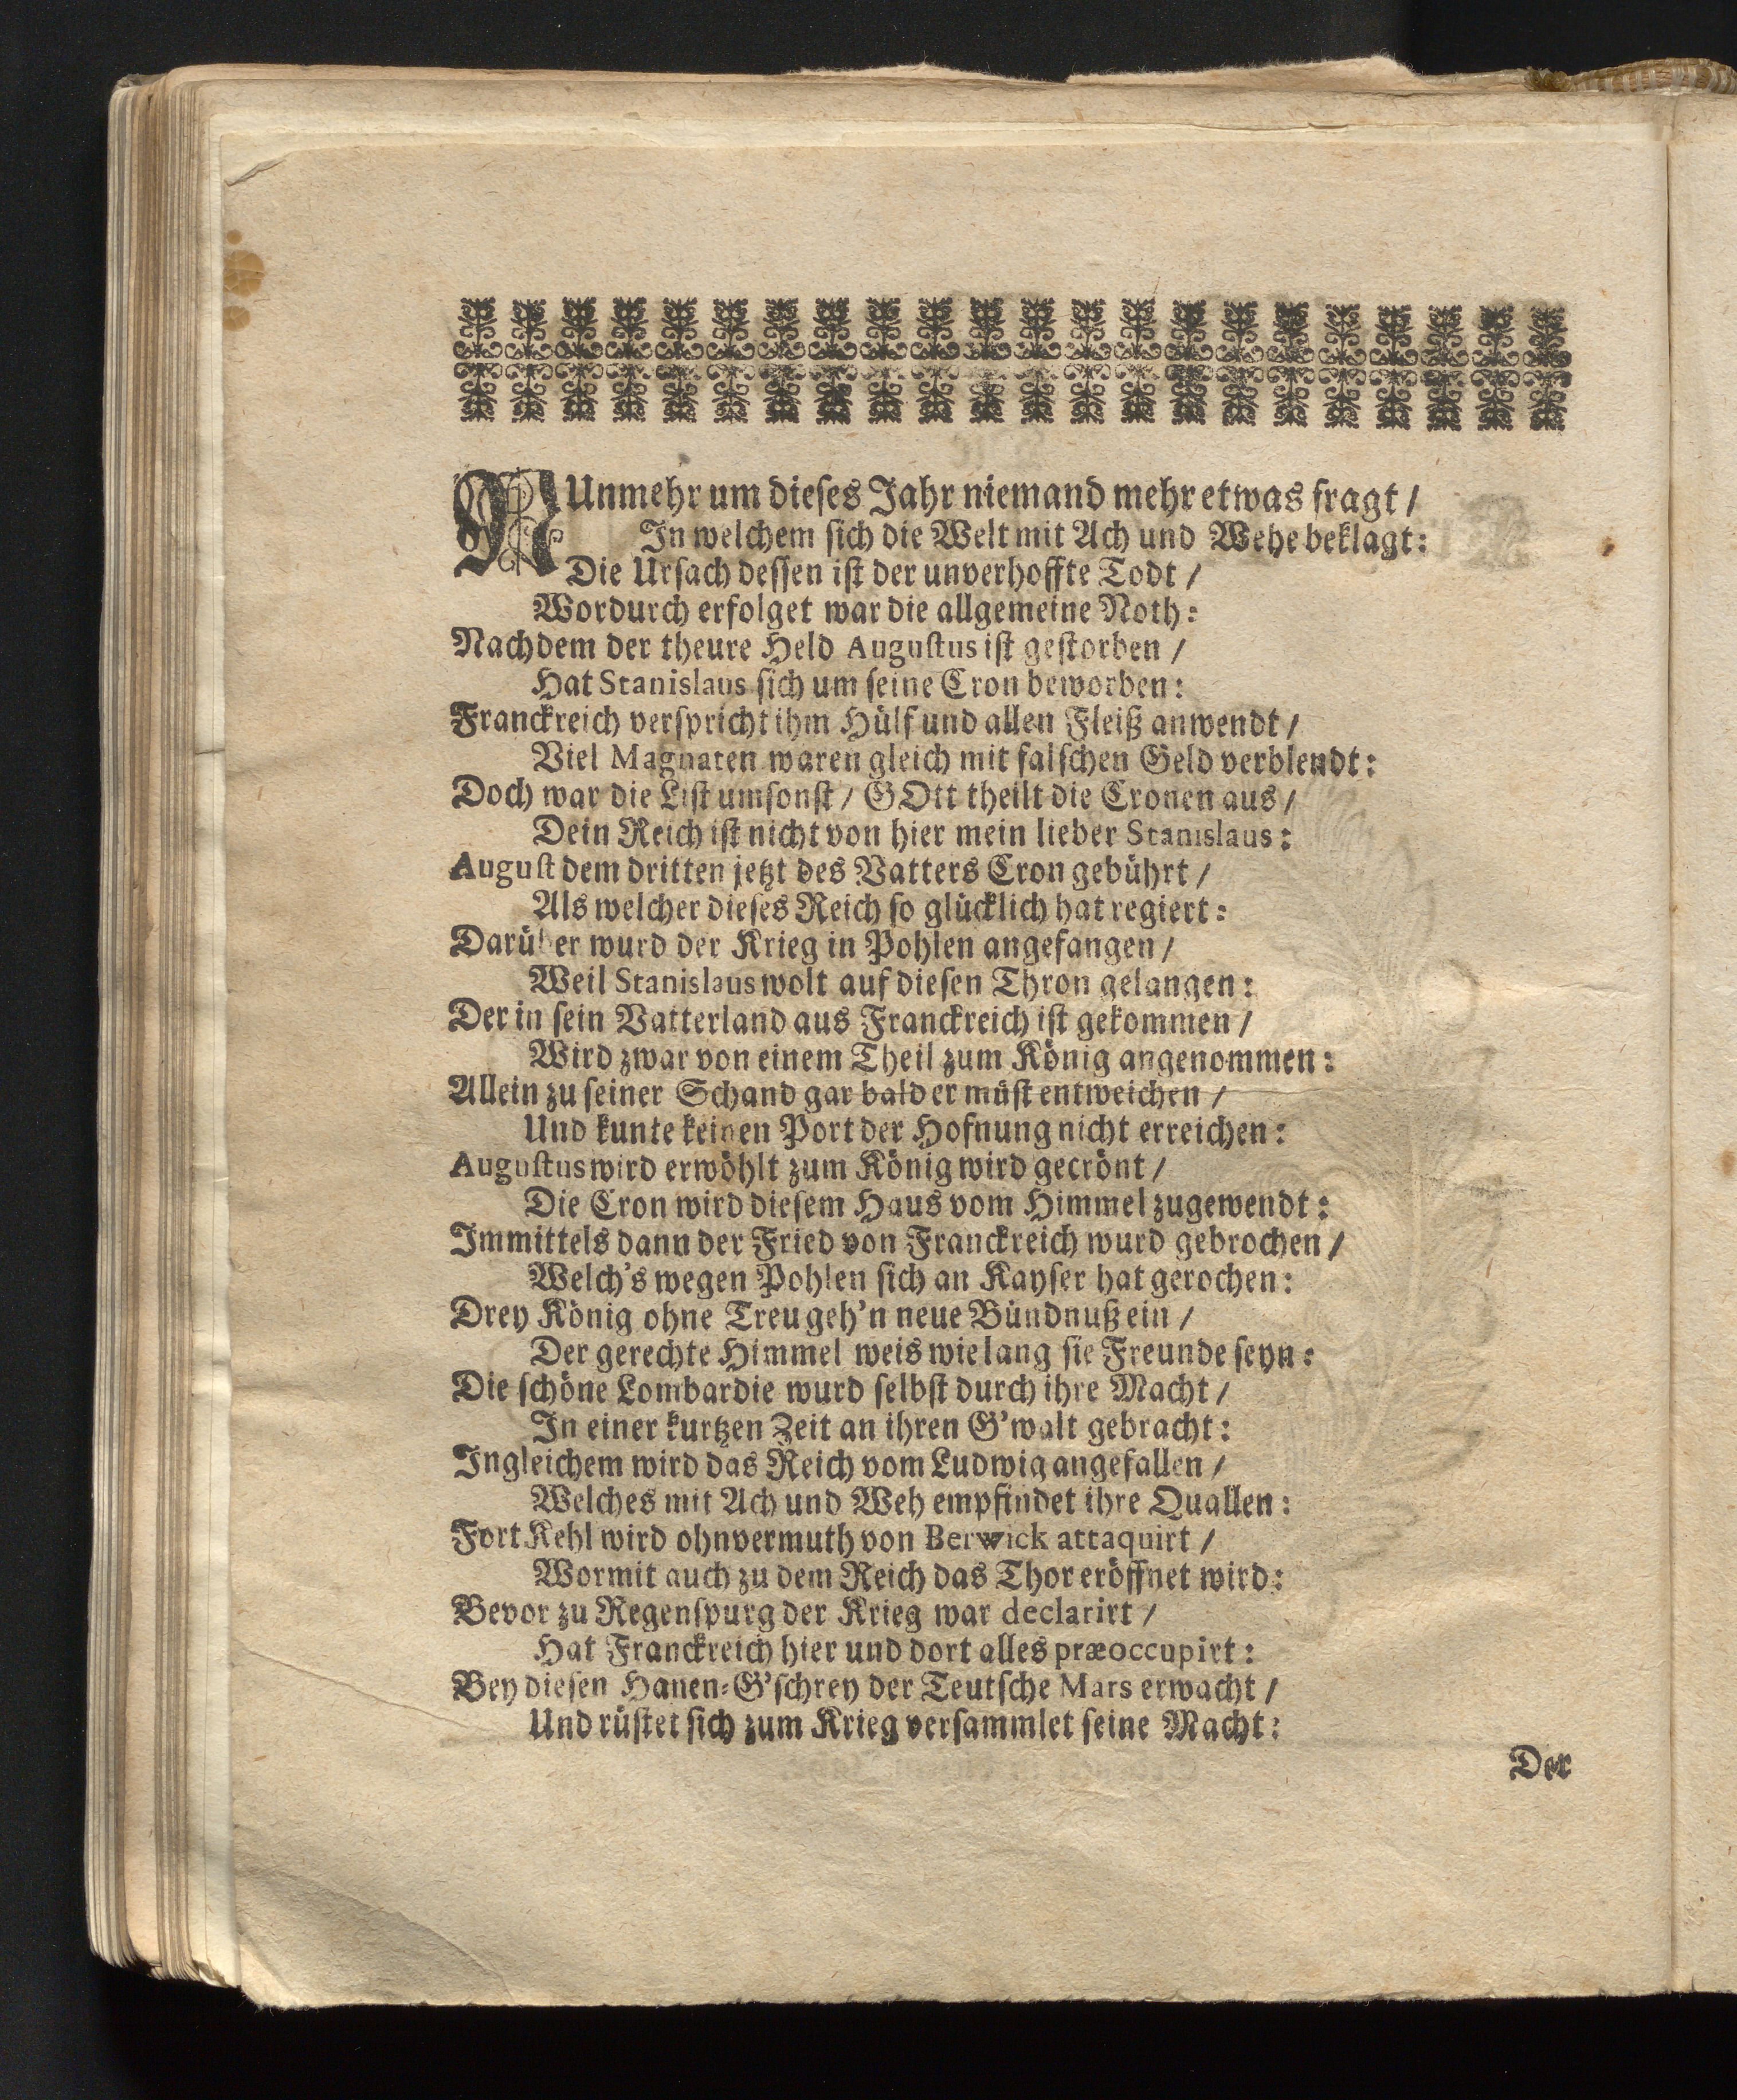 NUnmehr um dieses Jahr niemand mehr etwas fragt /
In welchem sich die Welt mit Ach und Wehe beklagt:
Die Ursach dessen ist der unverhoffte Todt /
Wordurch erfolget war die allgemeine Noth:
Nachdem der theure Held Augustus ist gestorben /
Hat Stanislaus sich um seine Cron beworben:
Franckreich verspricht ihm Hülf und allen Fleiß anwendt /
Viel Magnaten waren gleich mit falschen Geld verblendt:
Doch war die List umsonst / GOtt theilt die Cronen aus /
Dein Reich ist nicht von hier mein lieber Stanislaus:
August dem dritten jetzt des Vatters Cron gebührt /
Als welcher dieses Reich so glücklich hat regiert:
Darüber wurd der Krieg in Pohlen angefangen /
Weil Stanislaus wolt auf diesen Thron gelangen:
Der in sein Vatterland aus Franckreich ist gekommen /
Wird zwar von einem Theil zum König angenommen:
Allein zu seiner Schand gar bald er müst entweichen /
Und kunte keinen Port der Hofnung nicht erreichen:
Augustus wird erwöhlt zum König wird gecrönt /
Die Cron wird diesem Haus vom Himmel zugewendt:
Immittels dann der Fried von Franckreich wurd gebrochen /
Welch's wegen Pohlen sich an Kayser hat gerochen:
Drey König ohne Treu geh'n neue Bündnuß ein /
Der gerechte Himmel weis wie lang sie Freunde seyn:
Die schöne Lombardie wurd selbst durch ihre Macht /
In einer kurtzen Zeit an ihren G'walt gebracht:
Ingleichem wird das Reich vom Ludwig angefallen /
Welches mit Ach und Weh empfindet ihre Quallen:
Fort Kehl wird ohnvermuth von Berwick attaquirt /
Wormit auch zu dem Reich das Thor eröffnet wird:
Bevor zu Regenspurg der Krieg war declarirt /
Hat Franckreich hier und dort alles præoccupirt:
Bey diesen Hanen-G'schrey der Teutsche Mars erwacht /
Und rüstet sich zum Krieg versammlet seine Macht:
Der